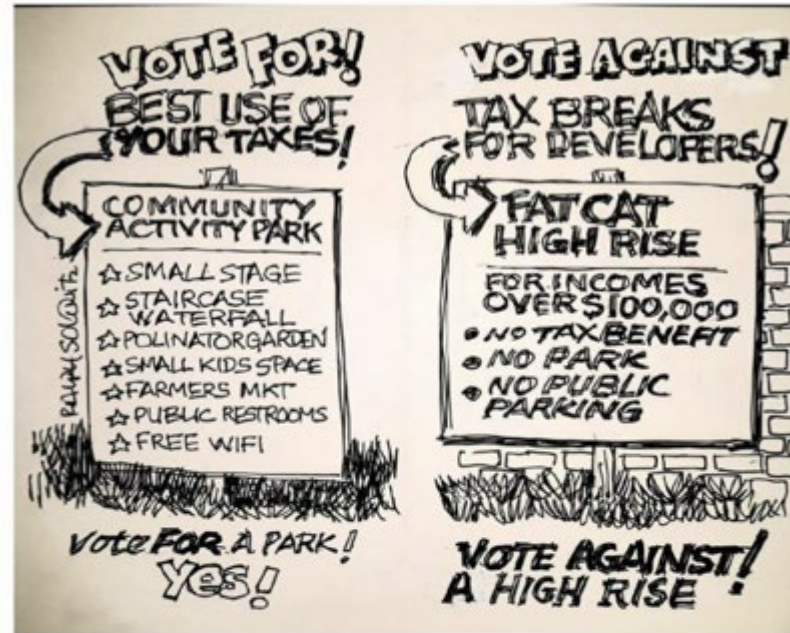 VOTE FOR!
BEST USE OF
YOUR TAXES!
COMMUNITY
ACTIVITY PARK
☆ SMALL STAGE
☆ STAIRCASE
WATERFALL
☆ POLINATOR GARDEN
☆ SMALL KIDS SPACE
☆ FARMERS MKT
☆ PUBLIC RESTROOMS
☆ FREE WIFI
Vote FOR A PARK!
YES!
VOTE AGAINST
TAX BREAKS
FOR DEVELOPERS!
FAT CAT
HIGH RISE
FOR INCOMES
OVER $100,000
• NO TAX BENEFIT
• NO PARK
• NO PUBLIC
PARKING
VOTE AGAINST!
A HIGH RISE